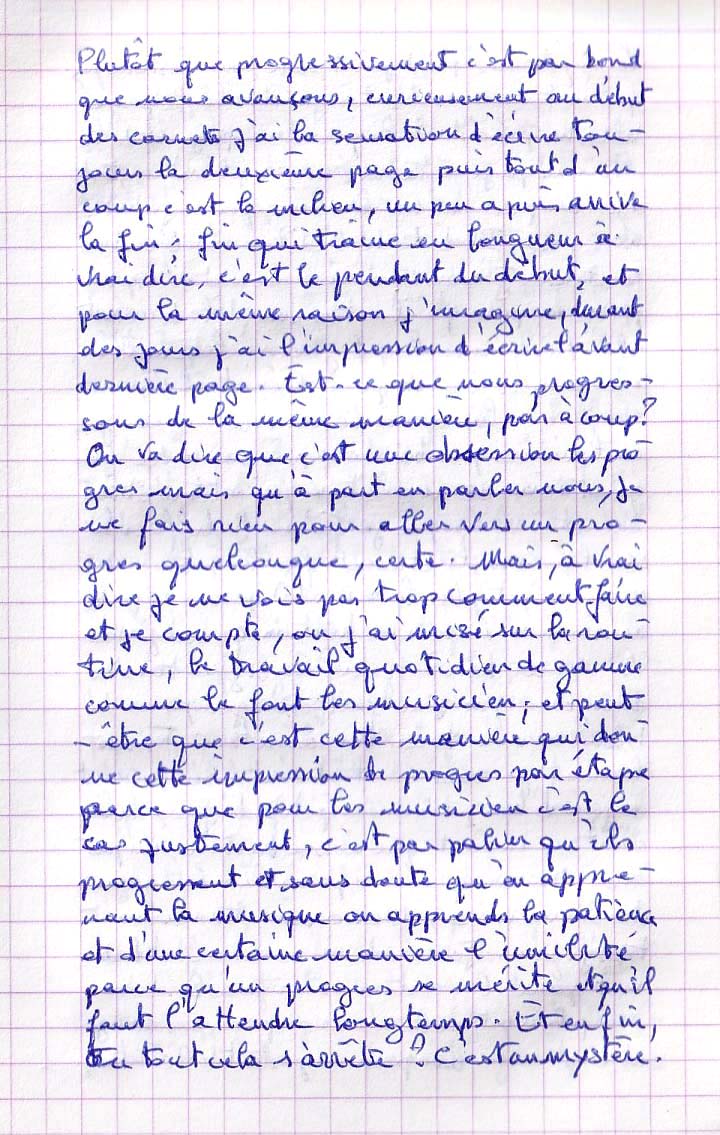 Plutôt que progressivement c'est par bond
que nous avançons, curieusement au début
des carnets j'ai la sensation d'écrire tou-
jours la deuxième page puis tout d'un
coup c'est le milieu, un peu après arrive
la fin ; fin qui traine en longueur à
vrai dire, c'est le pendant du début, et
pour la même raison j'imagine, durant
des jours j'ai l'impression d'écrire l'avant
dernière page. Est-ce que nous progres-
sons de la même manière, par à coup?
On va dire que c'est une obsession les pro-
gres mais qu'à part en parler nous, je
ne fais rien pour aller vers un pro-
gres quelconque, certe. Mais, à vrai
dire je ne vois pas trop comment faire
et je compte, ou j'ai misé sur la rou-
tine, le travail quotidien de gamme
comme le font les musicien ; et peut
- être que c'est cette manière qui don-
ne cette impression de progres par étape
parce que pour les musicien c'est le
cas justement, c'est par palier qu'ils
progressent et sans doute qu'en appre-
nant la musique on apprends la patience
et d'une certaine manière l'humilité
parce qu'un progres se mérite et qu'il
faut l'attendre longtemps. Et enfin,
tout cela s'arrête ? C'est un mystère.